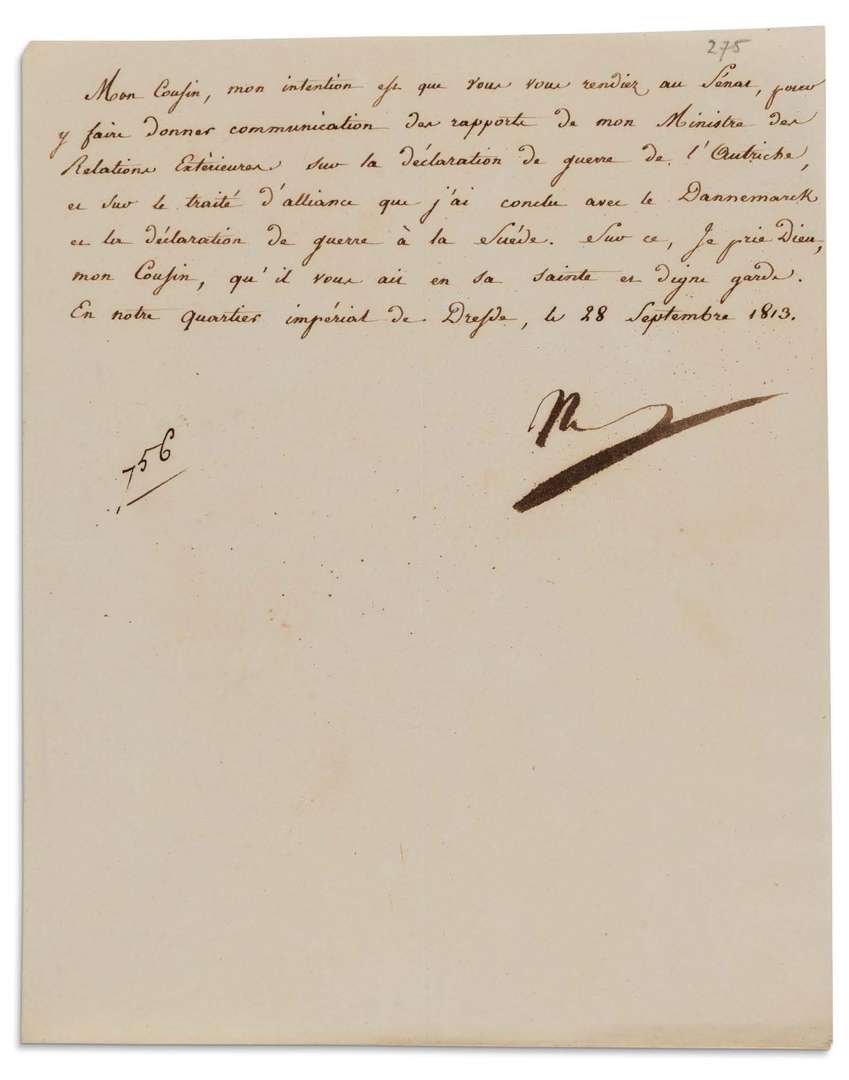 275
Mon Cousin, mon intention est que vous vous rendiez au Sénat, pour
y faire donner communication des rapports de mon Ministre des
Relations Extérieures sur la déclaration de guerre de l'Autriche,
et sur le traité d'alliance que j'ai conclu avec le Dannemarck
et la déclaration de guerre à la Suéde. Sur ce, Je prie Dieu,
mon Cousin, qu'il vous ait en sa sainte et digne garde.
En notre quartier impérial de Dresde, le 28 Septembre 1813.
756